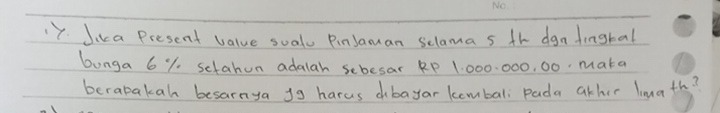 No.
1). Jika Present Value suatu Pinjaman selama 5 th dgn tingkat
bunga 6 % setahun adalah sebesar RP 1.000.000,00. maka
berapakah besarnya yg harus dibayar kembali pada akhir lima th?